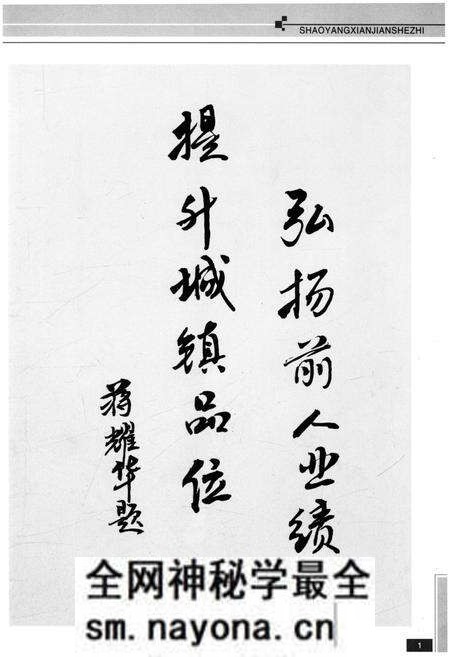 SHAOYANGXIANJIANSHEZHI
弘扬前人业绩
提升城镇品位
蒋耀华题
全网神秘学最全
sm.nayona.cn
1